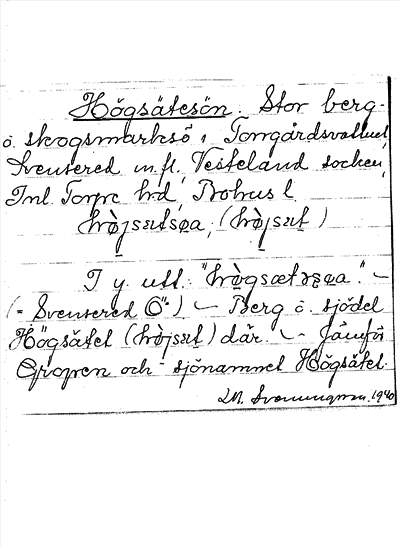 Högsätesön. Stor berg-
o. skogsmarksö i Torrgårdsvattnet,
Svensered m.fl. Västeland socken,
Inl. Torpe hd, Bohus l.
(hò̤jsætsøa, (hò̤jsæt)
I y. utt. "hò̤gsætsøa". –
(= Svensered Ö".) – Berg o. sjödel
Högsätet (hò̤jsæt) där. – Jämför
Gropen och sjönamnet Högsätet.
1940